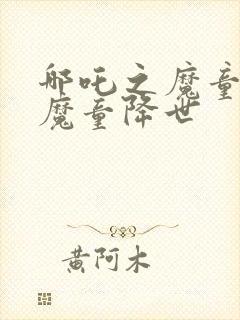 哪吒之魔童
魔童降世
黄阿木